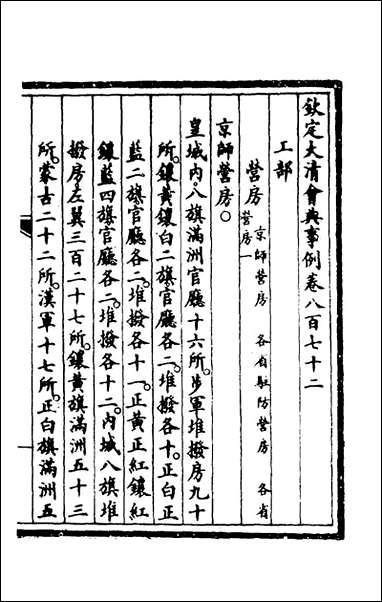 欽定大清會典事例卷八百七十二
工部
營房 京師營房 各省駐防營房 各省
營房一
京師營房○
皇城內八旗滿洲官廳十六所步軍堆撥房九十
所鑲黃鑲白二旗官廳各二堆撥各十正白正
藍二旗官廳各二堆撥各十一正黃正紅鑲紅
鑲藍四旗官廳各二堆撥各十二內城八旗堆
撥房左翼三百二十七所鑲黃旗滿洲五十三
所蒙古二十二所漢軍十七所正白旗滿洲五